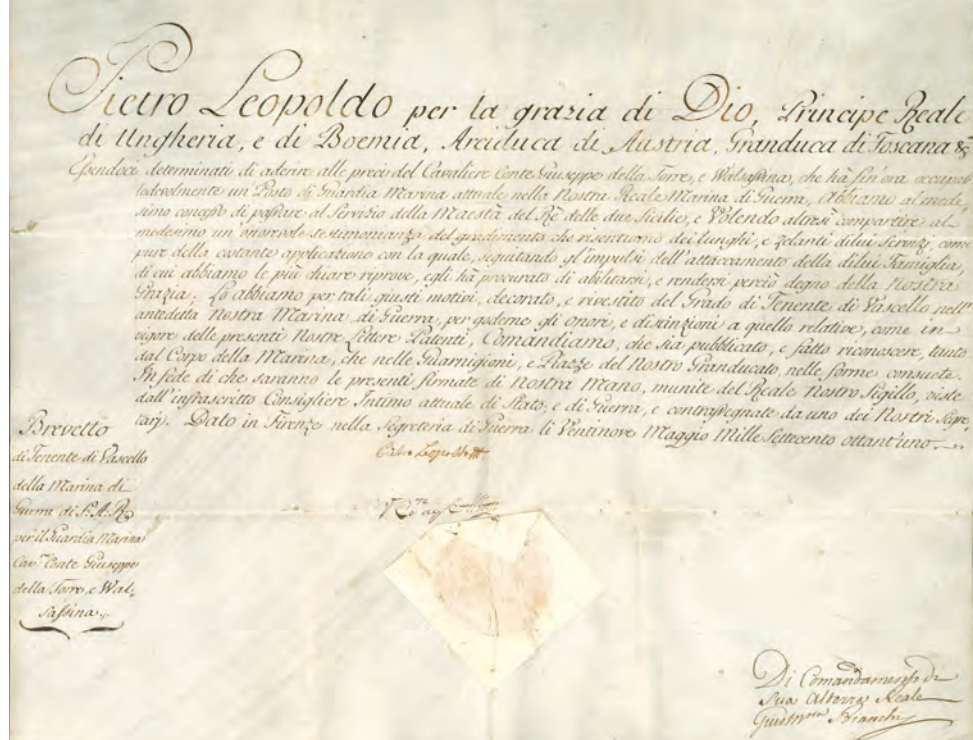 Pietro Leopoldo per la grazia di Dio, Principe Reale
di Ungheria, e di Boemia, Arciduca di Austria, Granduca di Toscana &
Essendoci determinati di aderire alle preci del Cavaliere Conte Giuseppe della Torre, e Walsassina, che há fin'ora occupato
lodevolmente un Posto di Guardia Marina attuale nella Nostra Reale Marina di Guerra, Abbiamo al mede-
simo concesso di passare al Servizio della Maestà del Rè delle due Sicilie, e Volendo altresì compartire al
medesimo un' onorevole testimonianza del gradimento che risentiamo dei lunghi, e zelanti di lui Servizi, come
pure della costante applicazione con la quale, seguitando gl'impulsi dell'attaccamento della di lui Famiglia,
di cui abbiamo le più chiare riprove, egli há procurato di abilitarsi, e rendersi perciò degno della Nostra
Grazia; Lo abbiamo per tali giusti motivi, decorato, e rivestito del Grado di Tenente di Vascello nell'
antedetta Nostra Marina di Guerra, per goderne gli onori, e distinzioni a quello relative, come in
vigore delle presenti Nostre Lettere Patenti, Comandiamo, che sia pubblicato, e fatto riconoscere, tanto
dal Corpo della Marina, che nelle Guarnigioni, e Piazze del Nostro Granducato, nelle forme consuete.
In fede di che saranno le presenti firmate di Nostra Mano, munite del Reale Nostro Sigillo, viste
dall'infrascritto Consigliere Intimo attuale di Stato, e di Guerra, e contrassegnate da uno dei Nostri Segre-
tarj. Dato in Firenze nella Segreteria di Guerra li Ventinove Maggio Mille Settecento ottant'uno.
Pietro Leopoldo
Brevetto
di Tenente di Vascello
della Marina di
Guerra di S. A. R.
per il Guardia Marina
Cav.re Conte Giuseppe
della Torre, e Wal-
sassina.
Di Comandamento di
Sua Altezza Reale
Bianchi